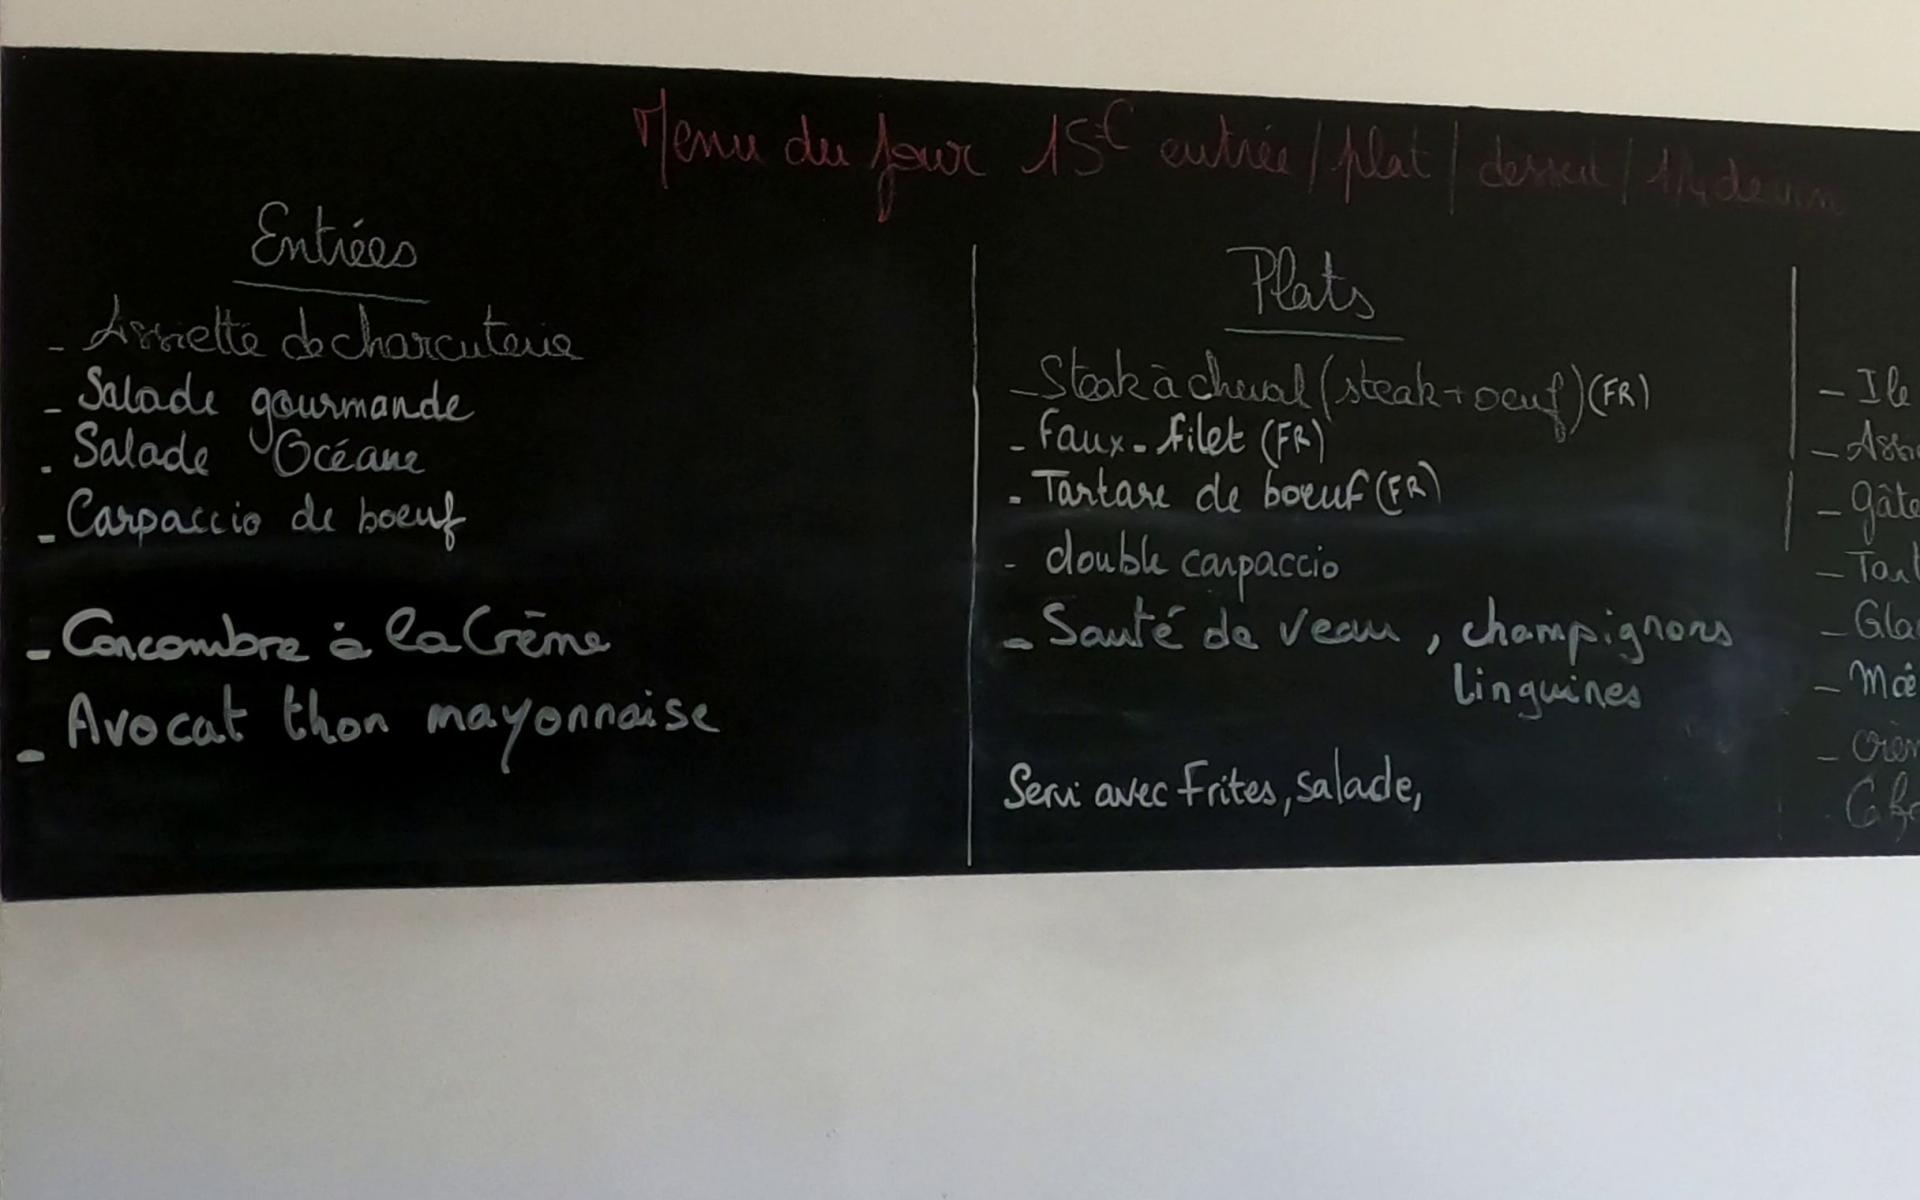 Menu du jour 15€ entrée / plat / dessert / 1/4 de vin
Entrées
- Assiette de charcuterie
- Salade gourmande
- Salade Océane
- Carpaccio de boeuf
- Concombre à la Crème
- Avocat thon mayonnaise
Plats
- Steak à cheval (steak + oeuf) (FR)
- Faux-filet (FR)
- Tartare de boeuf (FR)
- double carpaccio
- Sauté de veau, champignons
linguines
Servi avec Frites, salade,
- Ile